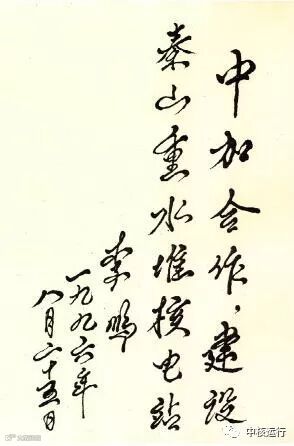 中加合作，建设
秦山重水堆核电站
李鹏
一九九六年
八月二十五日
中核运行